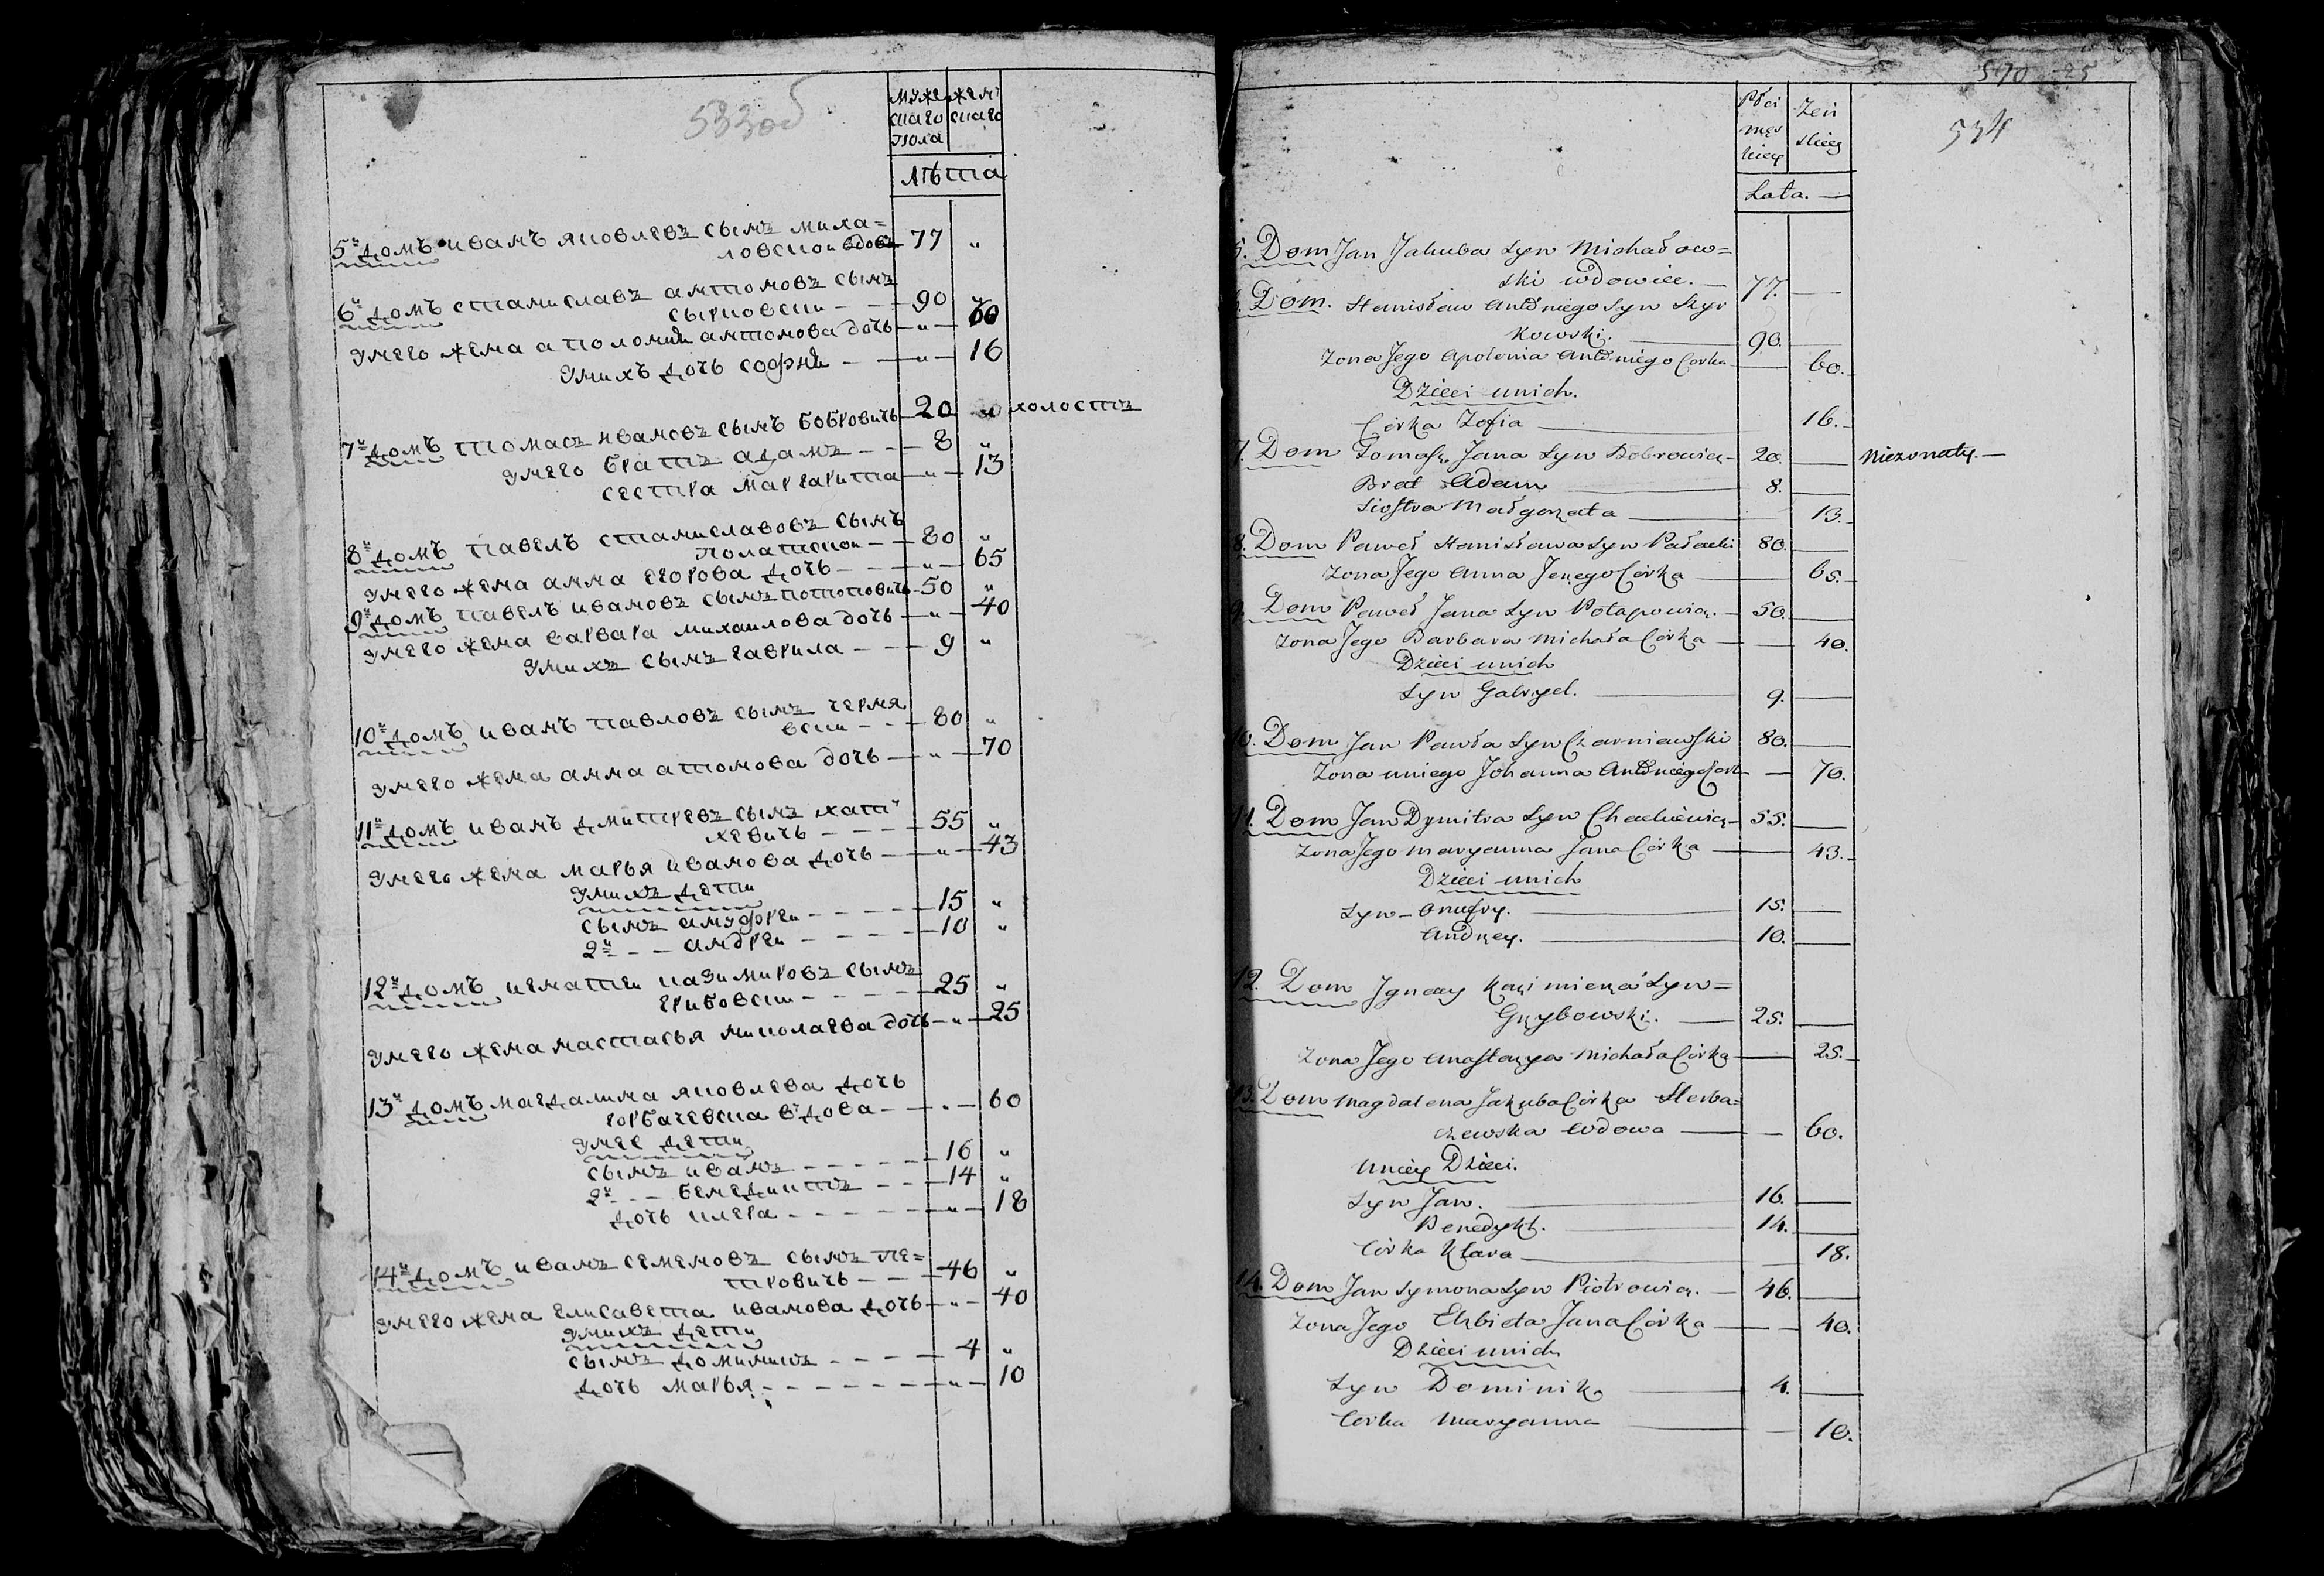 533об
Муже
скаго
пола
жен
скаго
лѣта
5й домъ иванъ яковлевъ сынъ миха=
ловскои вдовъ 77 "
6й домъ станиславъ антоновъ сынъ
сырковски - - 90 "
унего жена аполонии антонова дочь - " - 60
унихъ дочь софии - - " - 16
7й домъ томасъ ивановъ сынъ бобровичь 20 " холостъ
унего братъ адамъ - - - 8 "
сестра маргарита - " - 13
8й домъ павелъ станиславовъ сынъ
полацкои - - 80 "
унего жена анна егорова дочь - - - " - 65
9й домъ павелъ ивановъ сынъ потоповичь 50 "
унего жена варвара михаилова дочь - " - 40
унихъ сынъ гаврила - - - 9 "
10й домъ иванъ павловъ сынъ черня
вски - - - 80 "
унего жена анна атонова дочь - " - 70
11й домъ иванъ дмитревъ сынъ хат
кевичь - - - - 55 "
унего жена марья иванова дочь - - " - 43
унихъ дети
сынъ ануфреи - - - - - 15 "
2й - - андреи - - - - - 10 "
12й домъ игнатеи казимировъ сынъ
грибовски - - - - - 25 "
унего жена настасья николаева дочь - " - 25
13й домъ магдалина яковлева дочь
горбачевска вдова - - " - 60
унее дети
сынъ иванъ - - - - - 16 "
2й - - бенедиктъ - - - 14 "
дочь клера - - - - - - " - 18
14й домъ иванъ семеновъ сынъ пе=
тровичь - - - 46 "
унего жена елисавета иванова дочь - " - 40
унихъ дети
сынъ доминикъ - - - - 4 "
дочь марья - - - - - - - " - 10
570 25
534
Płci
męs
kiey
Żeń
skiey
Lata. —
5. Dom Jan Jakuba Syn Michałow=
ski wdowiec. — 77. —
6. Dom. Stanisław Antoniego Syn Syr
kowski. — 90. —
Zona Jego Apolonia Antoniego Corka — 60.
Dzieci unich.
Corka Zofia — 16.
7. Dom Tomasz Jana Syn Bobrowicz — 20. — Niezonaty. —
Brat Adam — 8. —
Siostra Małgorzata — 13.
8. Dom Paweł Stanisława Syn Połacki 80. —
Zona Jego Anna Jerzego Córka — 65.
9. Dom Paweł Jana Syn Potapowicz. — 50. —
Zona Jego Barbara Michała Córka — 40.
Dzieci unich
Syn Gabryel. — 9. —
10. Dom Jan Pawła Syn Czarniawski 80. —
Zona uniego Johanna Antoniego Cork — 70.
11. Dom Jan Dymitra Syn Chadkiewicz — 55. —
Zona Jego Maryanna Jana Córka — 43.
Dzieci unich
Syn — Onufry. — 15. —
Andrzey. — 10. —
12. Dom Jgnacy Kazimierza Syn =
Grzybowski. — 25. —
Zona Jego Anastazya Michała Córka — 25.
13. Dom Magdalena Jakuba Córka
czewska Wdowa — 60.
Uniey Dzieci.
Syn Jan. — 16. —
Benedykt. — 14. —
Córka Klara — 18.
14. Dom Jan Symona Syn Piotrowicz. — 46. —
Zona Jego Elzbieta Jana Córka — 40.
Dzieci unich
Syn Dominik — 4. —
Corka Maryanna — 10.